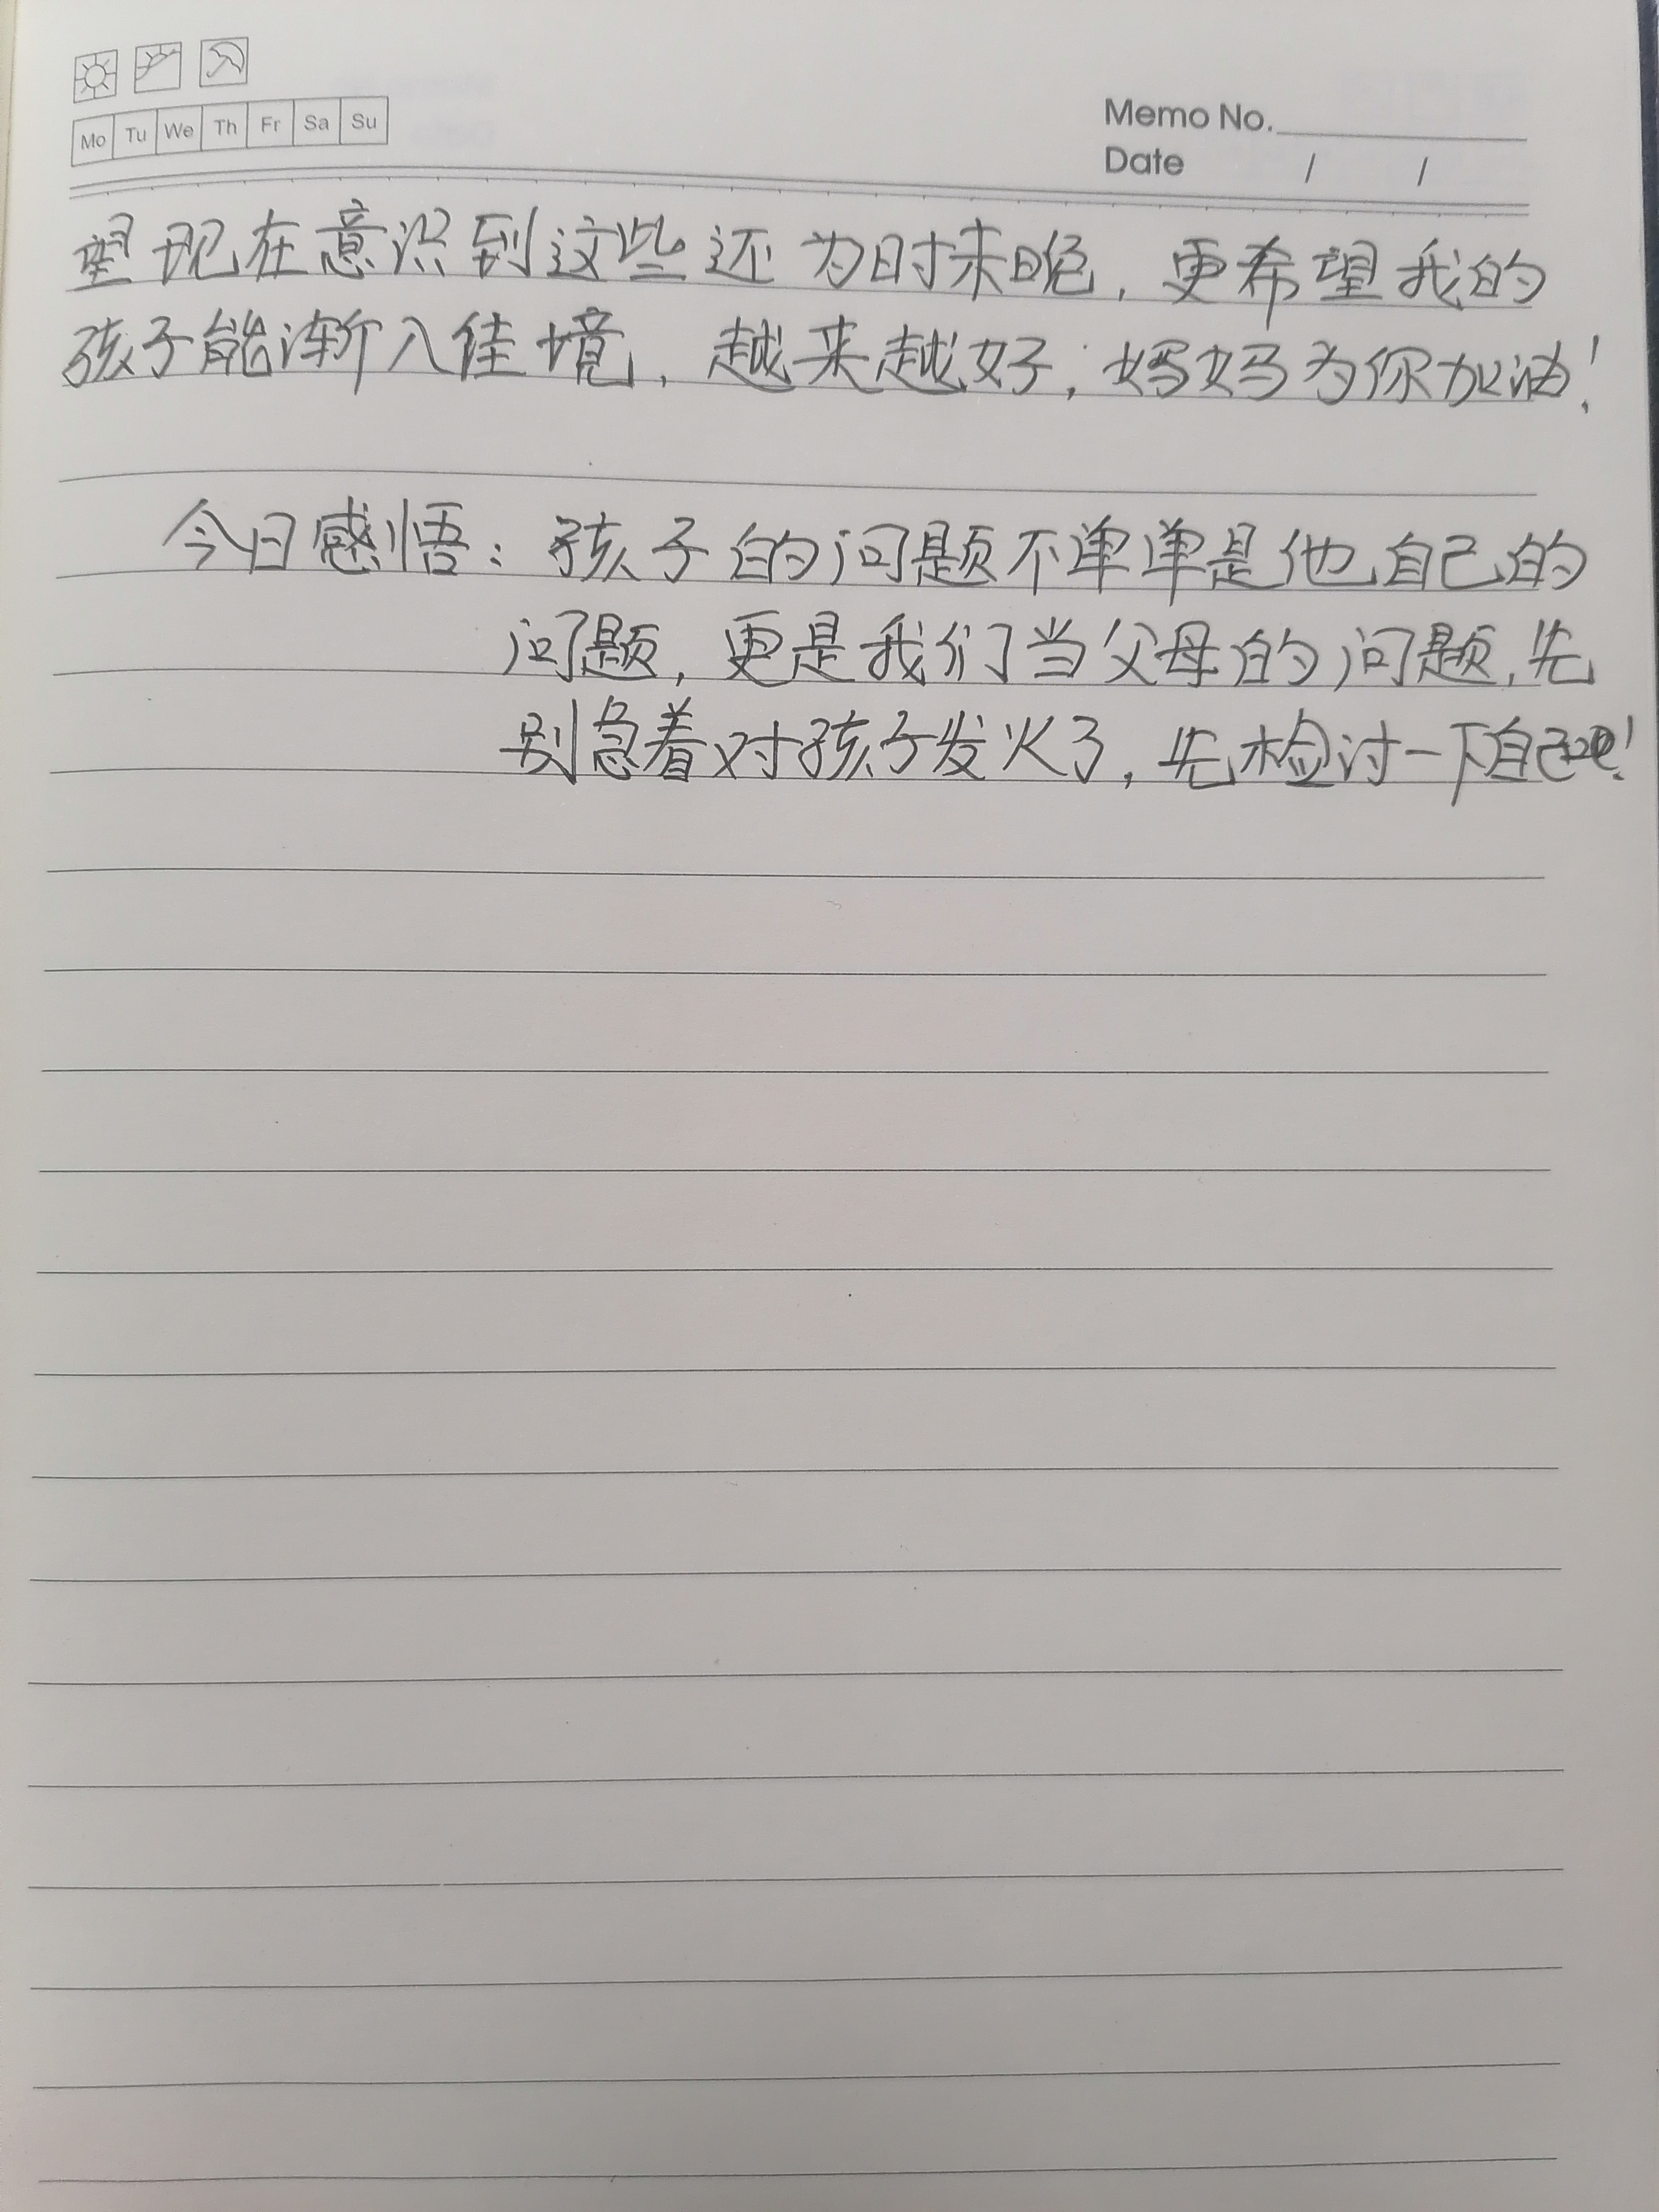 Mo Tu We Th Fr Sa Su
Memo No.
Date / /
望现在意识到这些还为时未晚，更希望我的
孩子能渐入佳境，越来越好，妈妈为你加油！
今日感悟：孩子的问题不单单是他自己的
问题，更是我们当父母的问题，先
别急着对孩子发火了，先检讨一下自己吧！